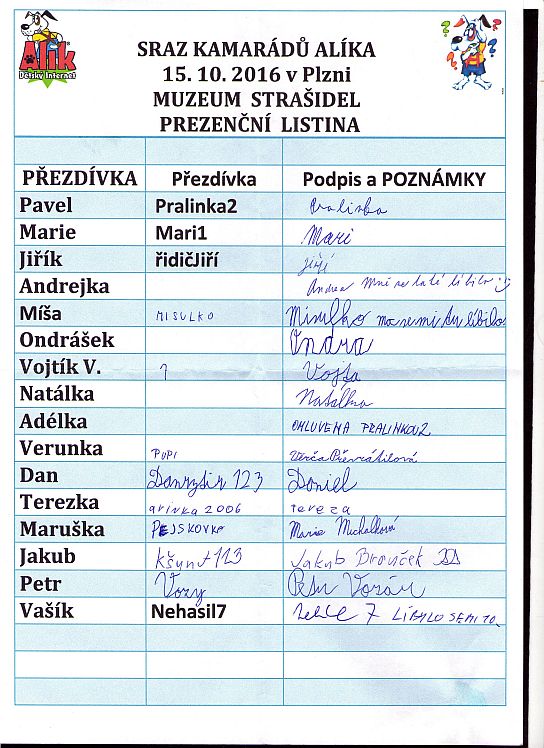 Alík
Dětský Internet
SRAZ KAMARÁDŮ ALÍKA
15. 10. 2016 v Plzni
MUZEUM STRAŠIDEL
PREZENČNÍ LISTINA
PŘEZDÍVKA Přezdívka Podpis a POZNÁMKY
Pavel Pralinka2 Pralinka
Marie Mari1 Mari
Jiřík řidičJiří Jiří
Andrejka Andrea mně se také líbilo :-)
Míša MISULKO Misulko moc se mi tu líbilo
Ondrášek Ondra
Vojtík V. ? Vojta
Natálka Natálka
Adélka OMLUVENA PRALINKOU2
Verunka PUPI
Dan 123 Daniel
Terezka arinka2006 Tereza
Maruška PEJSKOVKA Marie Michalková
Jakub kšunt123 Jakub Brouček
Petr Vozy Petr
Vašík Nehasil7 7 LÍBILO SE MI TO.